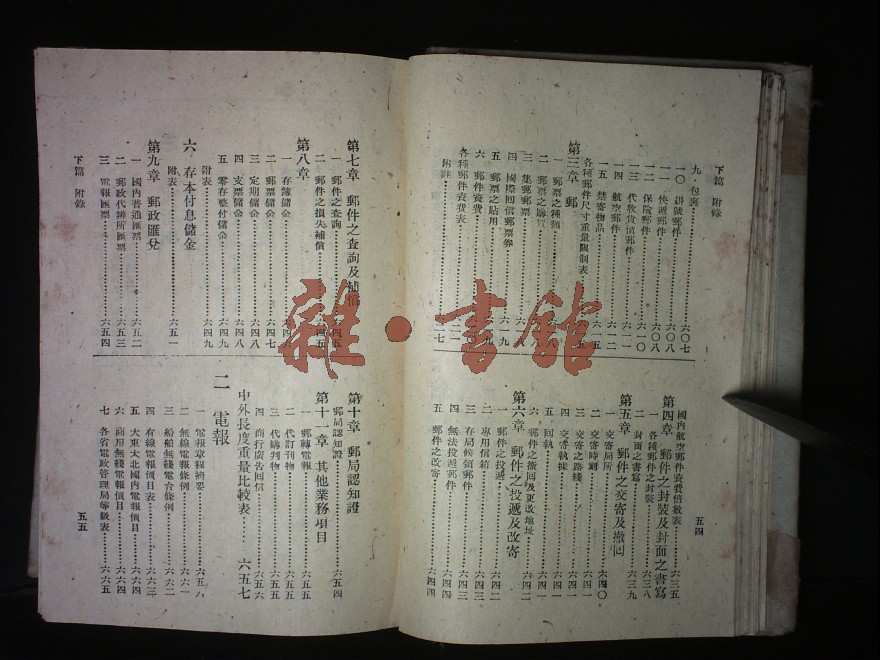 下篇 附錄
五四
九·包裹
一〇 掛號郵件
六〇七
一一 快遞郵件
六〇八
一二 保險郵件
六〇八
一三 代收貨價郵件
一四 航空郵件
一五 禁寄物品
各種郵件尺寸重量限制表
第三章 郵
一 郵票之種類
二 郵票之購
三 集郵郵票
四 國際回信郵票券
五 郵票之貼用
六 郵件資費
各種郵件資費表
附註
國內航空郵件資費倍數表
六三五
第四章 郵件之封裝及封面之書寫
一 各種郵件之封裝
六三八
二 封面之書寫
六三九
第五章 郵件之交寄及撤回
一 交寄局所
六四〇
二 交寄時刻
六四一
三 交寄之路綫
六四一
四 交寄執據
六四一
五 回執
六四一
六 郵件之撤回及更改地址
第六章 郵件之投遞及改寄
一 郵件之投遞
六四二
二 專用信箱
六四三
三 存局候領郵件
四 無法投遞郵件
六四四
五 郵件之改寄
六四四
第七章 郵件之查詢及補償
一 郵件之查詢
二 郵件之損失補償
第八章
一 存簿儲金
二 郵票儲金
六四七
三 定期儲金
六四八
四 支票儲金
六四八
五 零存整付儲金
六四九
附表
六四九
六 存本付息儲金
附表
六五一
第九章 郵政匯兌
一 國內普通匯票
六五二
二 郵政代辦所匯票
六五三
三 電報匯票
六五四
第十章 郵局認知證
郵局認知證
六五四
第十一章 其他業務項目
一 郵轉電報
六五五
二 代訂刊物
六五五
三 代購刊物
六五五
四 商行廣告回信
六五六
中外長度重量比較表
六五七
二 電報
一 電報章程摘要
二 無線電報條例
六六一
三 船舶無綫電台條例
六六二
四 有線電報價目表
六六三
五 大東大北國內電報價目
六六四
六 商用無綫電報價目
六六四
七 各省電政管理局等級表
六六五
下篇 附錄
五五
雜·書館